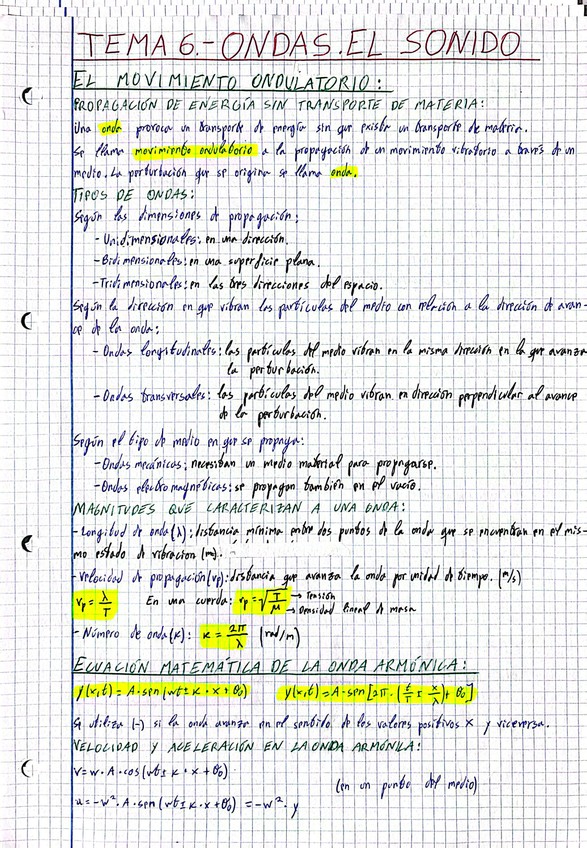 TEMA 6.-ONDAS.EL SONIDO
EL MOVIMIENTO ONDULATORIO:
PROPAGACIÓN DE ENERGÍA SIN TRANSPORTE DE MATERIA:
Una onda provoca un transporte de energía sin que exista un transporte de materia.
Se llama movimiento ondulatorio a la propagación de un movimiento vibratorio a través de un
medio. La perturbación que se origina se llama onda.
TIPOS DE ONDAS:
Según las dimensiones de propagación:
-Unidimensionales: en una dirección.
-Bidimensionales: en una superficie plana.
-Tridimensionales: en las tres direcciones del espacio.
Según la dirección en que vibran las partículas del medio con relación a la dirección de avan-
ce de la onda:
-Ondas longitudinales: las partículas del medio vibran en la misma dirección en la que avanza
la perturbación.
-Ondas transversales: las partículas del medio vibran en dirección perpendicular al avance
de la perturbación.
Según el tipo de medio en que se propaga:
-Ondas mecánicas: necesitan un medio material para propagarse.
-Ondas electromagnéticas: se propagan también en el vacío.
MAGNITUDES QUE CARACTERIZAN A UNA ONDA:
-Longitud de onda (λ): distancia mínima entre dos puntos de la onda que se encuentran en el mis-
mo estado de vibración (m).
-Velocidad de propagación (vp): distancia que avanza la onda por unidad de tiempo. (m/s)
vp = λ/T En una cuerda: vp = √(T/μ) → Tensión
→ Densidad lineal de masa
-Número de onda (k): k = 2π/λ (rad/m)
ECUACIÓN MATEMÁTICA DE LA ONDA ARMÓNICA:
y(x,t) = A·sen(wt ± k·x + θ0) y(x,t) = A·sen[2π·(t/T ± x/λ) + θ0]
Se utiliza (-) si la onda avanza en el sentido de los valores positivos x y viceversa.
VELOCIDAD Y ACELERACIÓN EN LA ONDA ARMÓNICA:
v = w·A·cos(wt ± k·x + θ0)
(en un punto del medio)
a = -w²·A·sen(wt ± k·x + θ0) = -w²·y